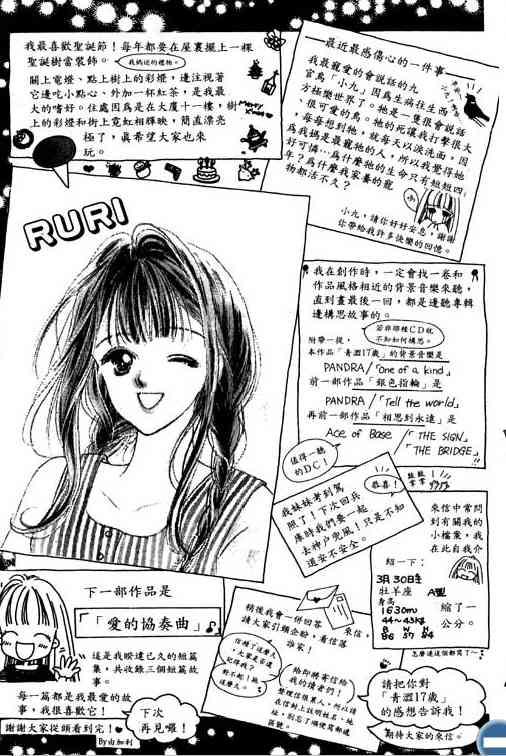 我最喜歡聖誕節！每年都要在屋裏擺上一棵
聖誕樹當裝飾。
我媽送的禮物。
關上電燈、點上樹上的彩燈，邊注視著
它邊吃小點心、外加一杯紅茶，是我最
大的嗜好。住處因為是在大廈十一樓，樹
上的彩燈和街上霓虹相輝映，簡直漂亮
極了，真希望大家也來
玩。
Merry X'mas
最近最感傷心的一件事
我最寵愛的會說話的九
官鳥「小九」因為生病往生西
方極樂世界了。牠是一隻很會說話
、很可愛的鳥。牠的死讓我打擊很大
，每每想到牠，就每天以淚洗面，因
為我媽是最疼牠的人，所以我覺得牠
好可憐…為什麼牠的生命只有短短四
年？為什麼我家養的寵
物都活不久？
小九，請你好好安息，謝謝
你帶給我許多快樂的回憶。
RURI
我在創作時，一定會找一卷和
作品風格相近的背景音樂來聽，
直到畫最後一回，都是邊聽專輯
邊構思故事的。
若非那種CD就
不知如何構思。
附帶一提，
本作品「青澀17歲」的背景音樂是
PANDRA/「One of a kind」
前一部作品「銀色指輪」是
PANDRA/「Tell the world」
再前一部作品「相思到永遠」是
Ace of Base/「THE SIGN」
「THE BRIDGE」
值得一聽
的DC！
恭喜！
我妹妹考到駕
照了！下次回兵
庫時我們要一起
去神戶兜風！只是不知
道安不安全。
來信中常問
到有關我的
小檔案，我
在此自我介
紹一下：
3月30日生
牡羊座 A型
身高
163cm
44～43kg
B W H
86 57 84
縮了一
公分。
怎麼連這個都寫了～
下一部作品是
「愛的協奏曲」♪
這是我睽違已久的短篇
集，共收錄三個短篇故
事。
每一篇都是我最愛的故
事，我很喜歡它！
謝謝大家從頭看到完！
下次
再見囉！
By由加利
稍後我會一併回答來信，
請大家引頸企盼，看信落
誰家！
給即將來信給
我的讀者們！
請把你對
「青澀17歲」
的感想告訴我！
期待大家的來信。